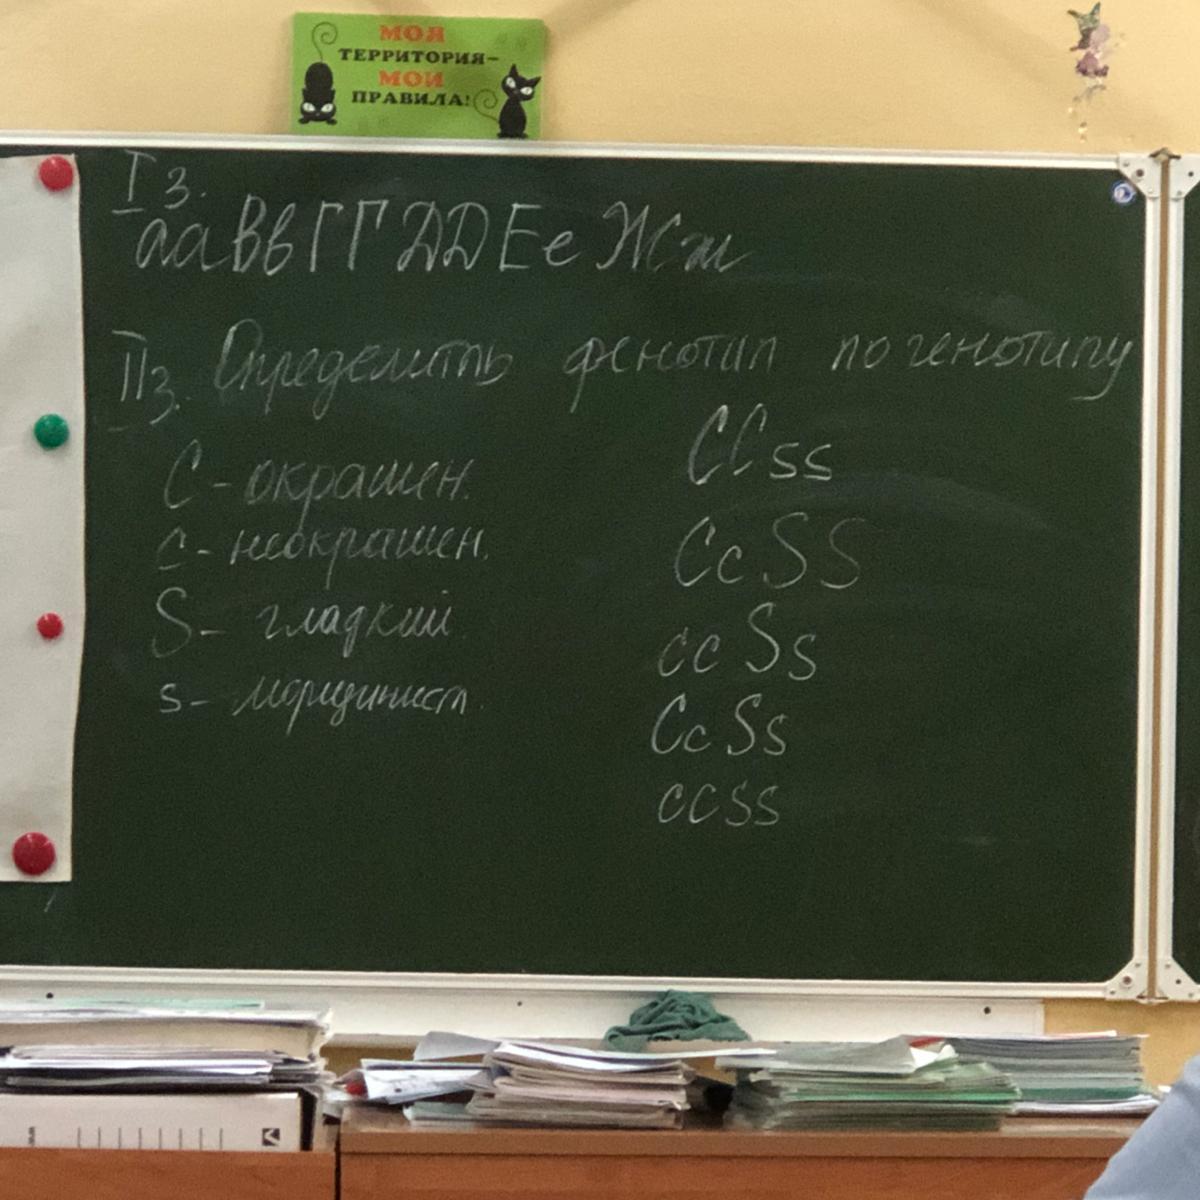 МОЯ
ТЕРРИТОРИЯ-
МОИ
ПРАВИЛА!
I з.
ааВвГГДДЕеЖж
IIз. Определить фенотип по генотипу
С - окрашен.
с - неокрашен.
S - гладкий
s - морщинист.
CCss
CcSS
ccSs
CcSs
ccss
www